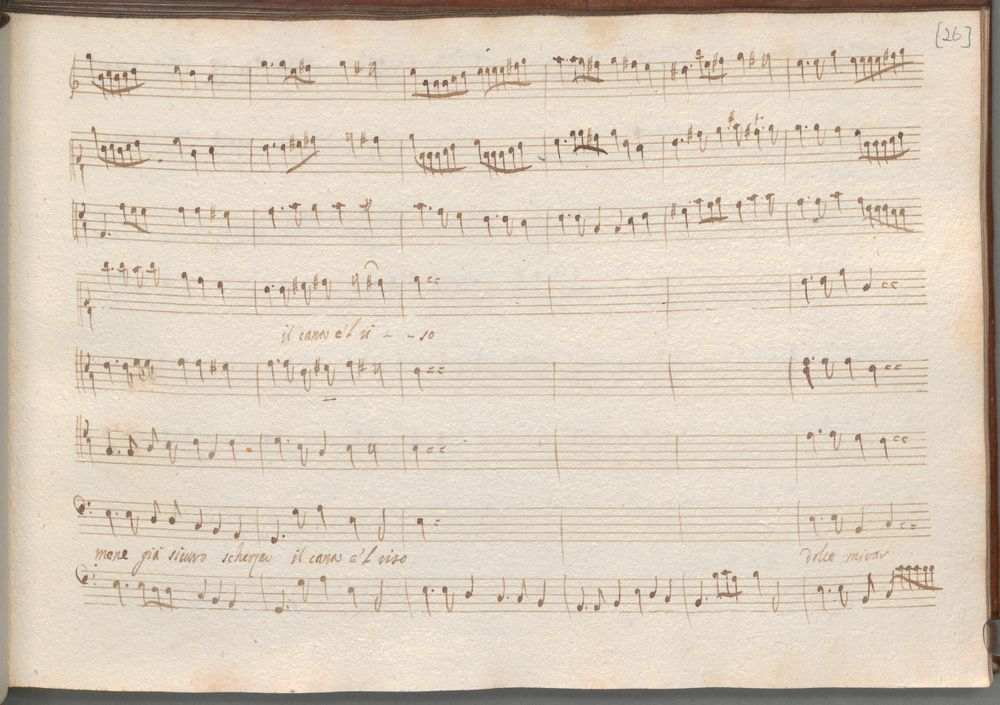 [26]
il canto e'l ri - - so
mene già siuvo scherzar il canto e'l riso
dolce mirar